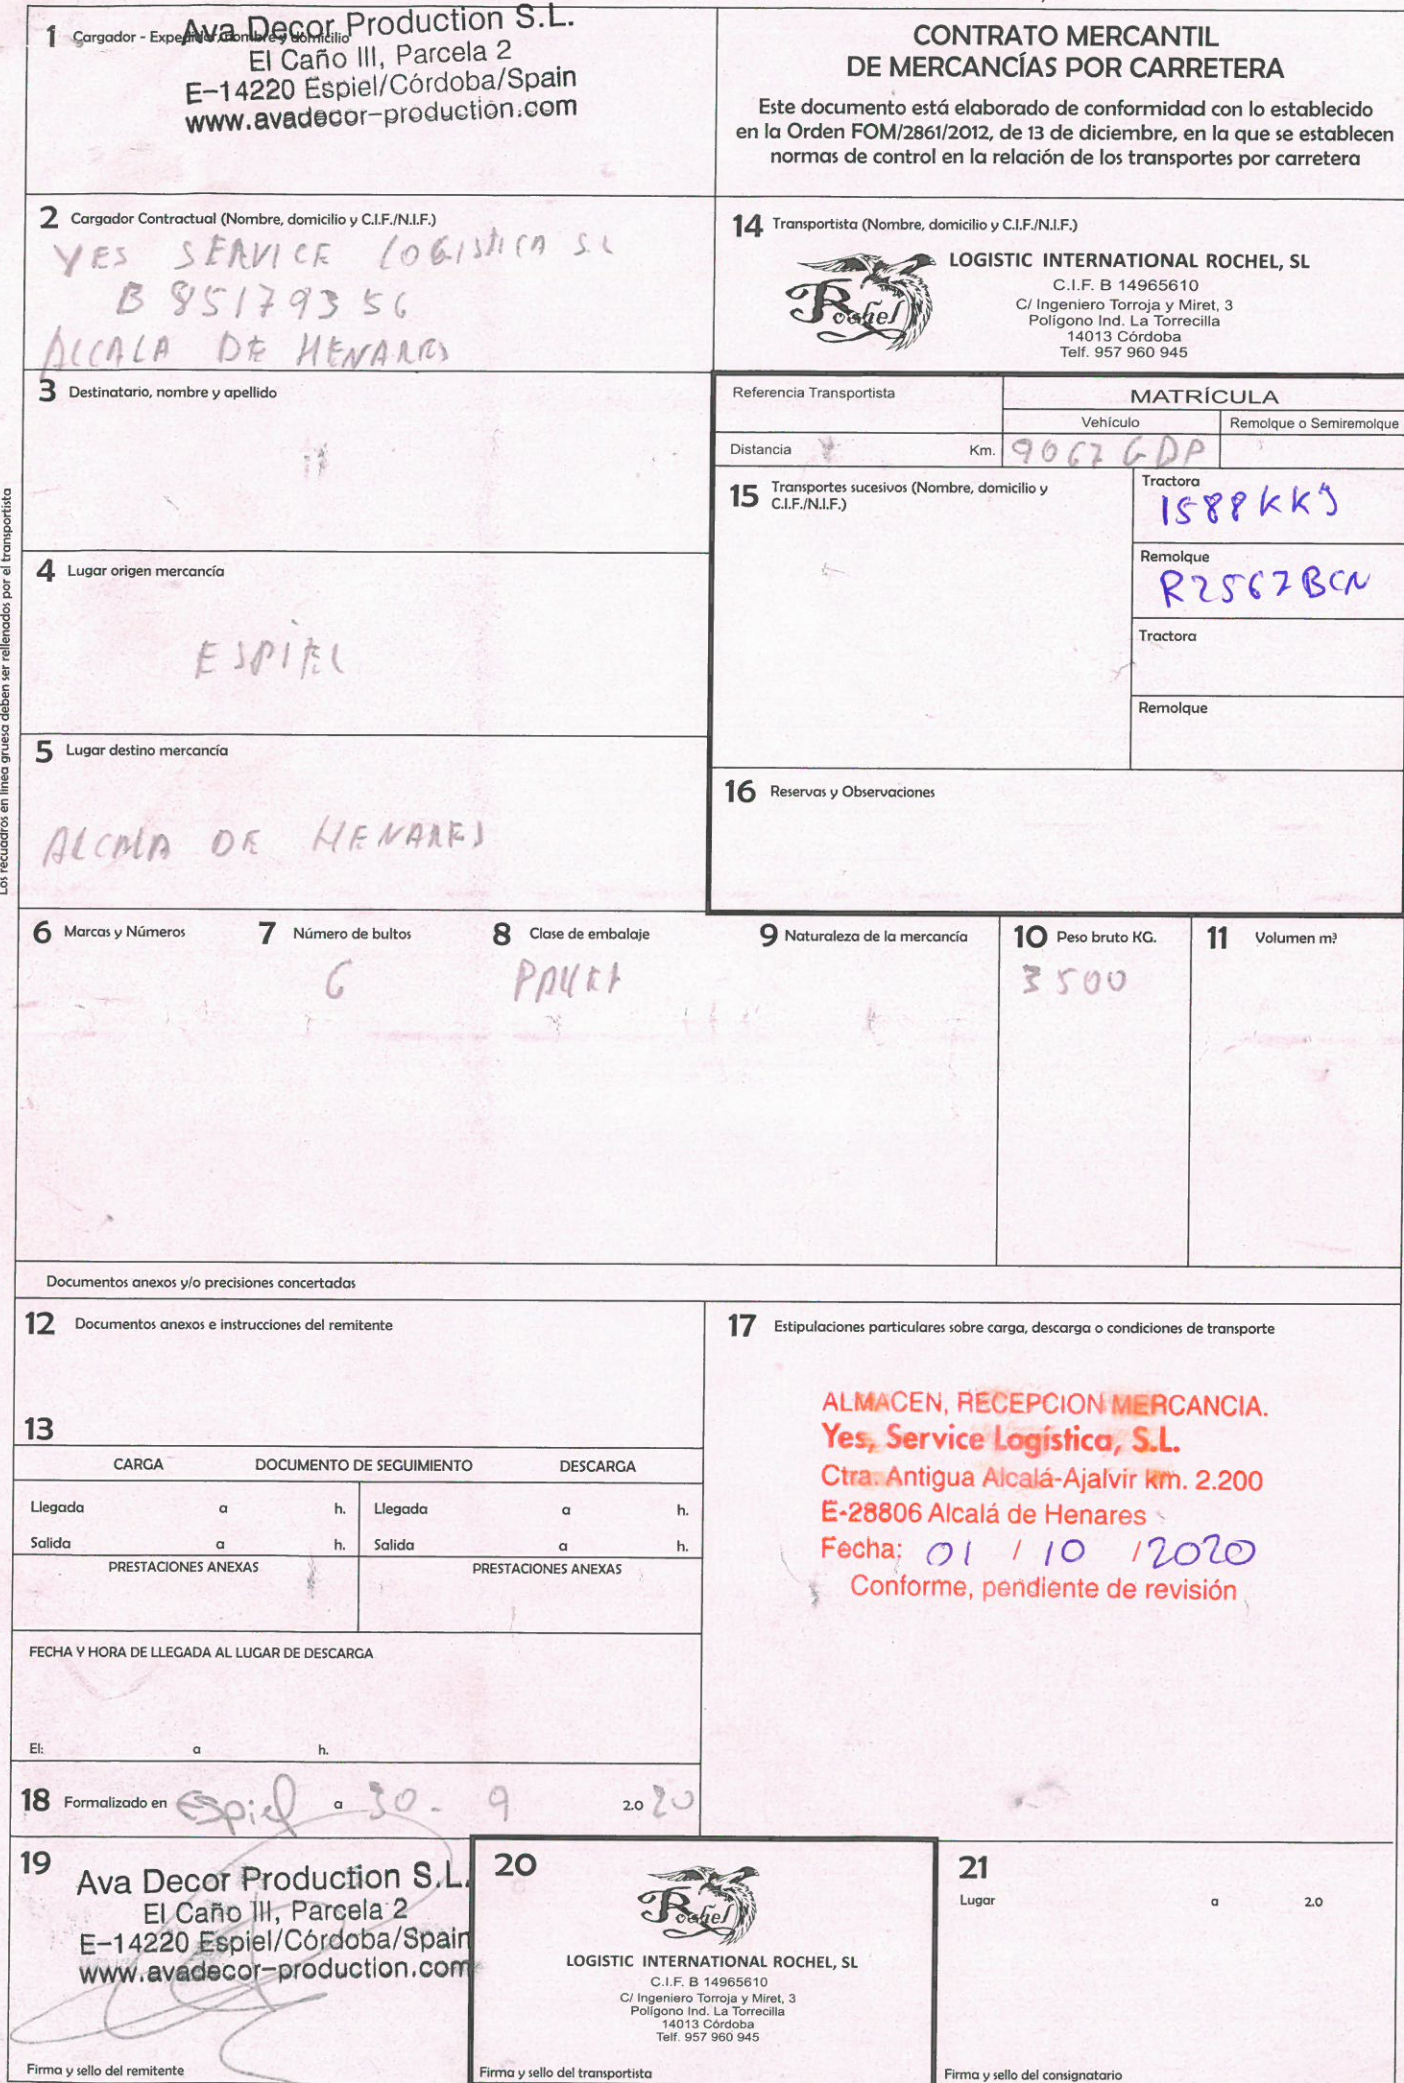 1 Cargador - Expedidor, nombre y domicilio
Ava Decor Production S.L.
El Caño III, Parcela 2
E-14220 Espiel/Córdoba/Spain
www.avadecor-production.com
CONTRATO MERCANTIL
DE MERCANCÍAS POR CARRETERA
Este documento está elaborado de conformidad con lo establecido
en la Orden FOM/2861/2012, de 13 de diciembre, en la que se establecen
normas de control en la relación de los transportes por carretera
2 Cargador Contractual (Nombre, domicilio y C.I.F./N.I.F.)
YES SERVICE LOGISTICA SL
B 85179356
ALCALA DE HENARES
14 Transportista (Nombre, domicilio y C.I.F./N.I.F.)
Rochel
LOGISTIC INTERNATIONAL ROCHEL, SL
C.I.F. B 14965610
C/ Ingeniero Torroja y Miret, 3
Polígono Ind. La Torrecilla
14013 Córdoba
Telf. 957 960 945
3 Destinatario, nombre y apellido
Referencia Transportista
MATRÍCULA
Vehículo
Remolque o Semiremolque
Distancia Km.
9067 GDP
15 Transportes sucesivos (Nombre, domicilio y
C.I.F./N.I.F.)
Tractora
1588KKJ
Remolque
R2567BCN
Tractora
Remolque
4 Lugar origen mercancía
ESPIEL
5 Lugar destino mercancía
ALCALA DE HENARES
16 Reservas y Observaciones
Los recuadros en línea gruesa deben ser rellenados por el transportista
6 Marcas y Números
7 Número de bultos
8 Clase de embalaje
9 Naturaleza de la mercancía
10 Peso bruto KG.
11 Volumen m³
6
3500
Documentos anexos y/o precisiones concertadas
12 Documentos anexos e instrucciones del remitente
13
CARGA DOCUMENTO DE SEGUIMIENTO DESCARGA
Llegada a h. Llegada a h.
Salida a h. Salida a h.
PRESTACIONES ANEXAS PRESTACIONES ANEXAS
FECHA Y HORA DE LLEGADA AL LUGAR DE DESCARGA
El: a h.
17 Estipulaciones particulares sobre carga, descarga o condiciones de transporte
ALMACEN, RECEPCION MERCANCIA.
Yes, Service Logística, S.L.
Ctra. Antigua Alcalá-Ajalvir km. 2.200
E-28806 Alcalá de Henares
Fecha: 01 / 10 / 2020
Conforme, pendiente de revisión
18 Formalizado en Espiel a 30 - 9 2.0 20
19
Ava Decor Production S.L.
El Caño III, Parcela 2
E-14220 Espiel/Córdoba/Spain
www.avadecor-production.com
Firma y sello del remitente
20
Rochel
LOGISTIC INTERNATIONAL ROCHEL, SL
C.I.F. B 14965610
C/ Ingeniero Torroja y Miret, 3
Polígono Ind. La Torrecilla
14013 Córdoba
Telf. 957 960 945
Firma y sello del transportista
21
Lugar a 2.0
Firma y sello del consignatario